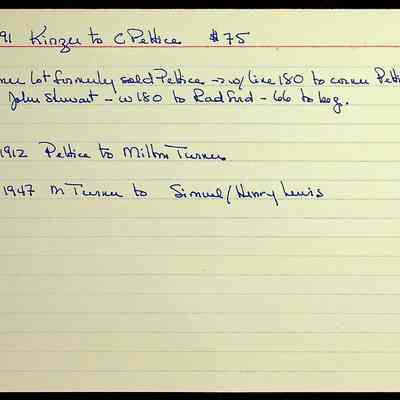 91 Kinzer to C Pettice $75
ner lot formerly sold Pettice → w/ line 180 to corner Petti
John Stewart - w 180 to Radford - 66 to beg.
1912 Pettice to Milton Turner
1947 M Turner to Simuel/Henry Lewis